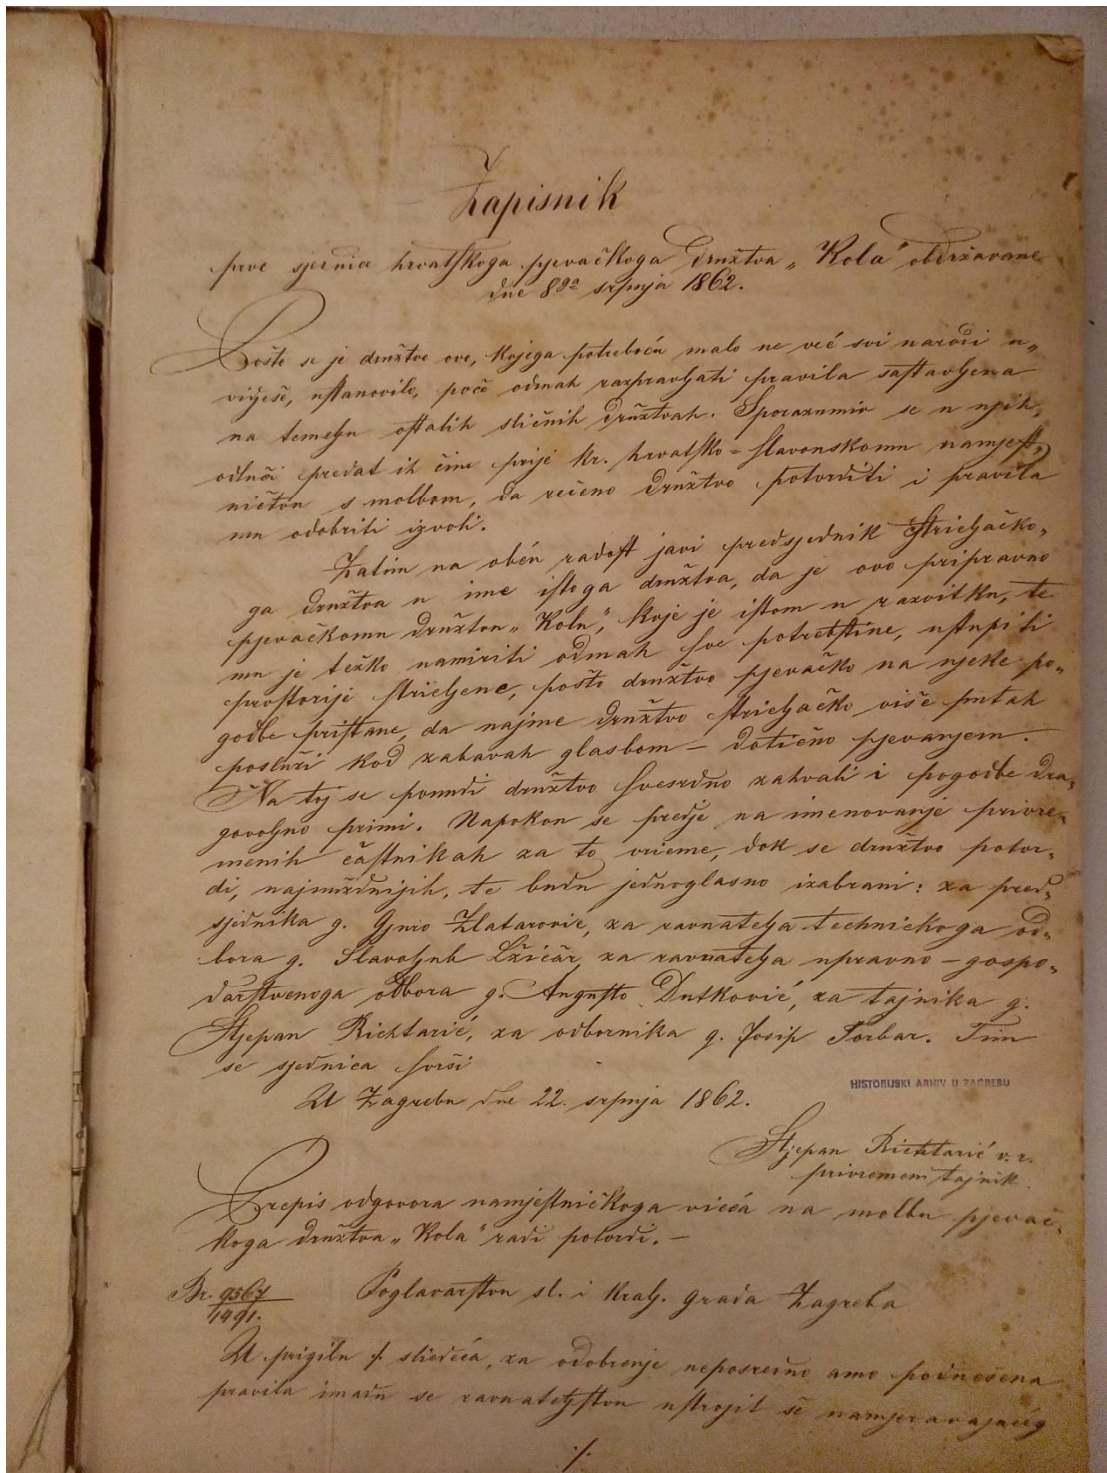 Zapisnik
prve sjednice hrvatskoga pjevačkoga družtva „Kola” obdržavane
dne 8ga srpnja 1862.
Pošto se je družtvo ovo, kojega potreboću malo ne već svi narodi u„
vidješe, ustanovilo, poče odmah razpravljati pravila sastavljena
na temelju ostalih sličnih družtvah. Sporazumiv se u njih,
odluči predat ih čim prije kr. hrvatsko=slavonskomu namjest„
ničtvu s molbom, da rečeno družtvo potvrditi i pravila
mu odobriti izvoli.
Zatim na obću radost javi predsjednik strieljačko„
ga družtva u ime istoga družtva, da je ovo pripravno
pjevačkomu družtvu „Kolu”, koje je istom u razvitku, te
mu je težko namiriti odmah sve potrebštine, ustupiti
prostorije strieljene, pošto družtvo pjevačko na njeke po„
godbe pristane, da najme družtvo strieljačko više putah
posluži kod zabavah glasbom – dotično pjevanjem.
Na toj se ponudi družtvo svesrdno zahvali i pogodbe dra„
govoljno primi. Napokon se predje na imenovanje privre„
menih častnikah za to vrieme, dok se družtvo potvr„
di, najnuždnijih, te budu jednoglasno izabrani: za pred„
sjednika g. Gjuro Zlatarović, za ravnatelja techničkoga od„
bora g. Slavoljub Lžičar, za ravnatelja upravno – gospo„
darstvenoga odbora g. Augusto Dutković, za tajnika g.
Stjepan Richtarić, za odbornika g. Josip Torbar. Tim
se sjednica svrši
U Zagrebu dne 22. srpnja 1862.
HISTORIJSKI ARHIV U ZAGREBU
Stjepan Richtarić v. r.
privremeni tajnik.
Prepis odgovora namjestničkoga vieća na molbu pjevač„
koga družtva „Kola” radi potvrdi. –
Br. 9567
1491.
Poglavarstvu sl. i kralj. grada Zagreba
U prigibu ·/. sliedeća, za odobrenje neposredno amo podnešena
pravila imadu se ravnateljstvu ustrojit se namjeravajućeg
·/.